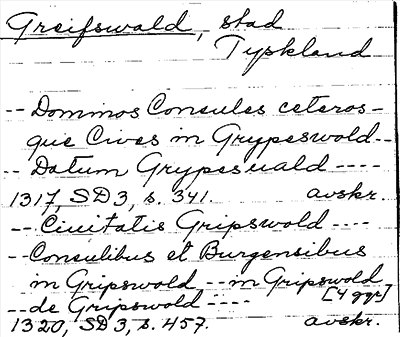 Greifswald, stad
Tyskland
-- Dominos Consules ceteros-
que Cives in Grypeswold --
-- Datum Grypesuald ----
1317, SD 3, s. 341. avskr.
-- Ciuitatis Gripswold ----
-- Consulibus et Burgensibus
in Gripswold -- in Gripswold
-- de Gripswold ---- [4 ggr]
1320, SD 3, s. 457. avskr.